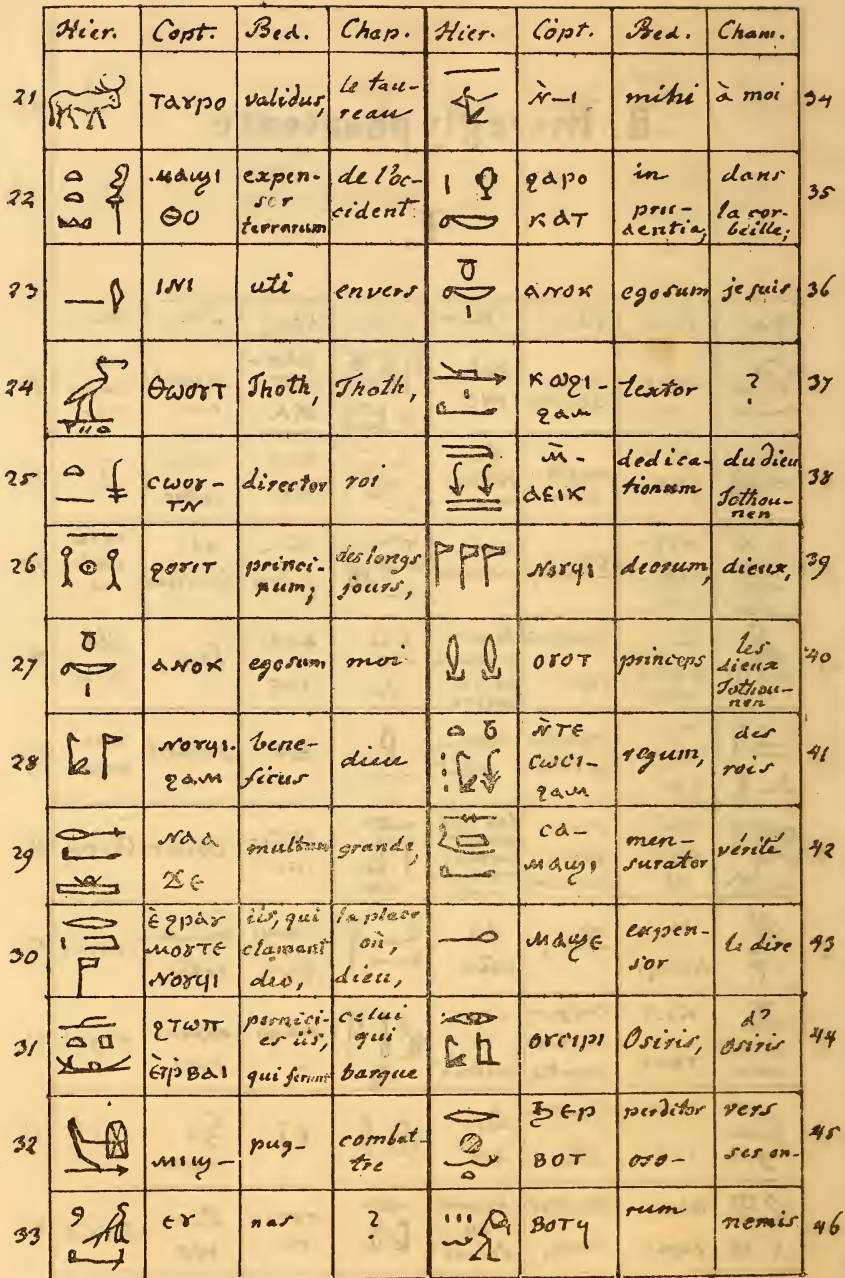 Hier. Copt. Bed. Chap. Hier. Copt. Bed. Cham.
21 ⲧⲁⲩⲣⲟ validus, le tau-
reau
ⲛ̀-ⲓ mihi à moi 34
22 ⲙⲁϣⲓ
ⲑⲟ
expen-
sor
terrarum
de l'oc-
cident
ϩⲁⲣⲟ
ⲕⲁⲧ
in
pru-
dentia,
dans
la cor-
beille; 35
23 ⲓⲛⲓ uti envers ⲁⲛⲟⲕ ego sum je suis 36
24 ⲑⲱⲟⲩⲧ Thoth, Thoth, ⲕⲱϩⲓ-
ϩⲁⲙ
textor ? 37
25 ⲥⲱⲟⲩ-
ⲧⲛ
director roi ⲙ̀-
ⲁⲉⲓⲕ
dedica-
tionum
du dieu
Tothou-
nen 38
26 ϩⲟⲩⲓⲧ princi-
pum,
des longs
jours,
ⲛⲟⲩϥⲓ deorum, dieux, 39
27 ⲁⲛⲟⲕ ego sum moi ⲟⲩⲟⲧ princeps les
dieux
Tothou-
nen 40
28 ⲛⲟⲩϥⲓ.
ϩⲁⲙ
bene-
ficus
dieu ⲛ̀ⲧⲉ
ⲥⲱⲥⲓ-
ϩⲁⲙ
regum, des
rois 41
29 ⲛⲁⲁ
ϫⲉ
multum grande, ⲥⲁ-
ⲙⲁϣⲓ
men-
surator
vérité 42
30 ⲉ̀ϩⲣⲁⲩ
ⲙⲟⲩⲧⲉ
ⲛⲟⲩϥⲓ
iis, qui
clamant
deo,
la place
où,
dieu,
ⲙⲁϣⲉ expen-
sor
le dire 43
31 ϩⲧⲱⲡ
ⲉⲣⲃⲁⲓ
pernici-
es iis,
qui ferunt
celui
qui
barque
ⲟⲩⲥⲓⲣⲓ Osiris, d'
Osiris 44
32 ⲙⲓϣ- pug- combat-
tre
ϧⲉⲣ
ⲃⲟⲧ
perditor
oso-
vers
ses en- 45
33 ⲉⲩ nas ? ⲃⲟⲧϥ rum nemis 46